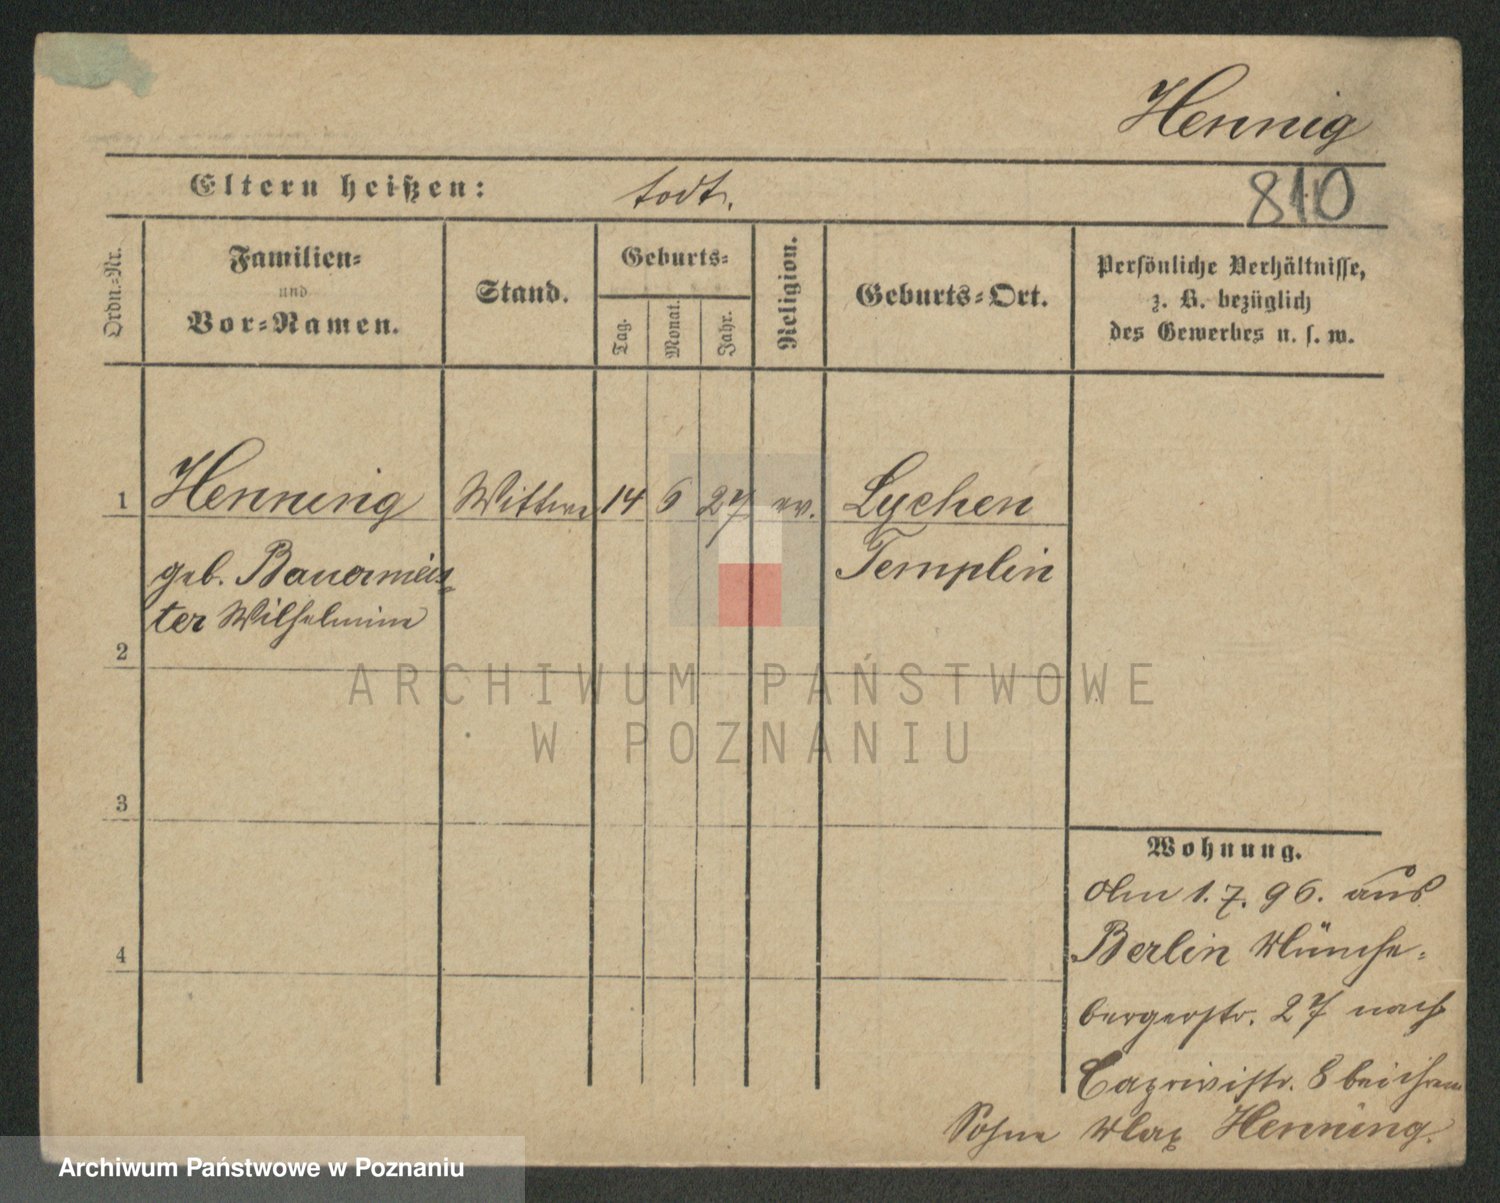 Hennig
Eltern heißen: todt.
810
Ordn.=Nr.
Familien=
und
Vor=Namen.
Stand.
Geburts=
Tag.
Monat.
Jahr.
Religion.
Geburts=Ort.
Persönliche Verhältnisse,
z. B. bezüglich
des Gewerbes u. s. w.
1 Henning Wittwe 14 6 27 ev. Lychen
geb. Bauermeis=
ter Wilhelmine
Templin
2
3
4
ARCHIWUM PAŃSTWOWE
W POZNANIU
Wohnung.
Am 1.7.96. aus
Berlin Münche=
bergerstr. 27 nach
Caprivistr. 8 bei ihrem
Sohne Max Henning.
Archiwum Państwowe w Poznaniu